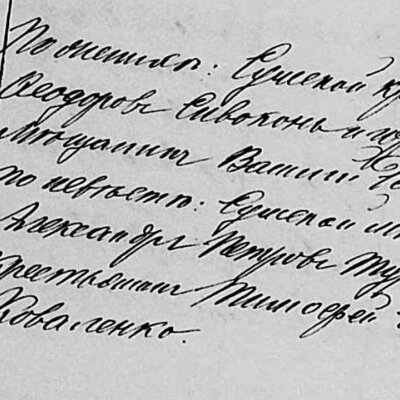 По жениху: Сумской кр
Ѳеодоръ Сивоконь и
Мѣщанинъ Василий
по невѣстѣ: Сумской м
Александръ Петровъ
крестьянинъ Тимоѳей
Коваленко.